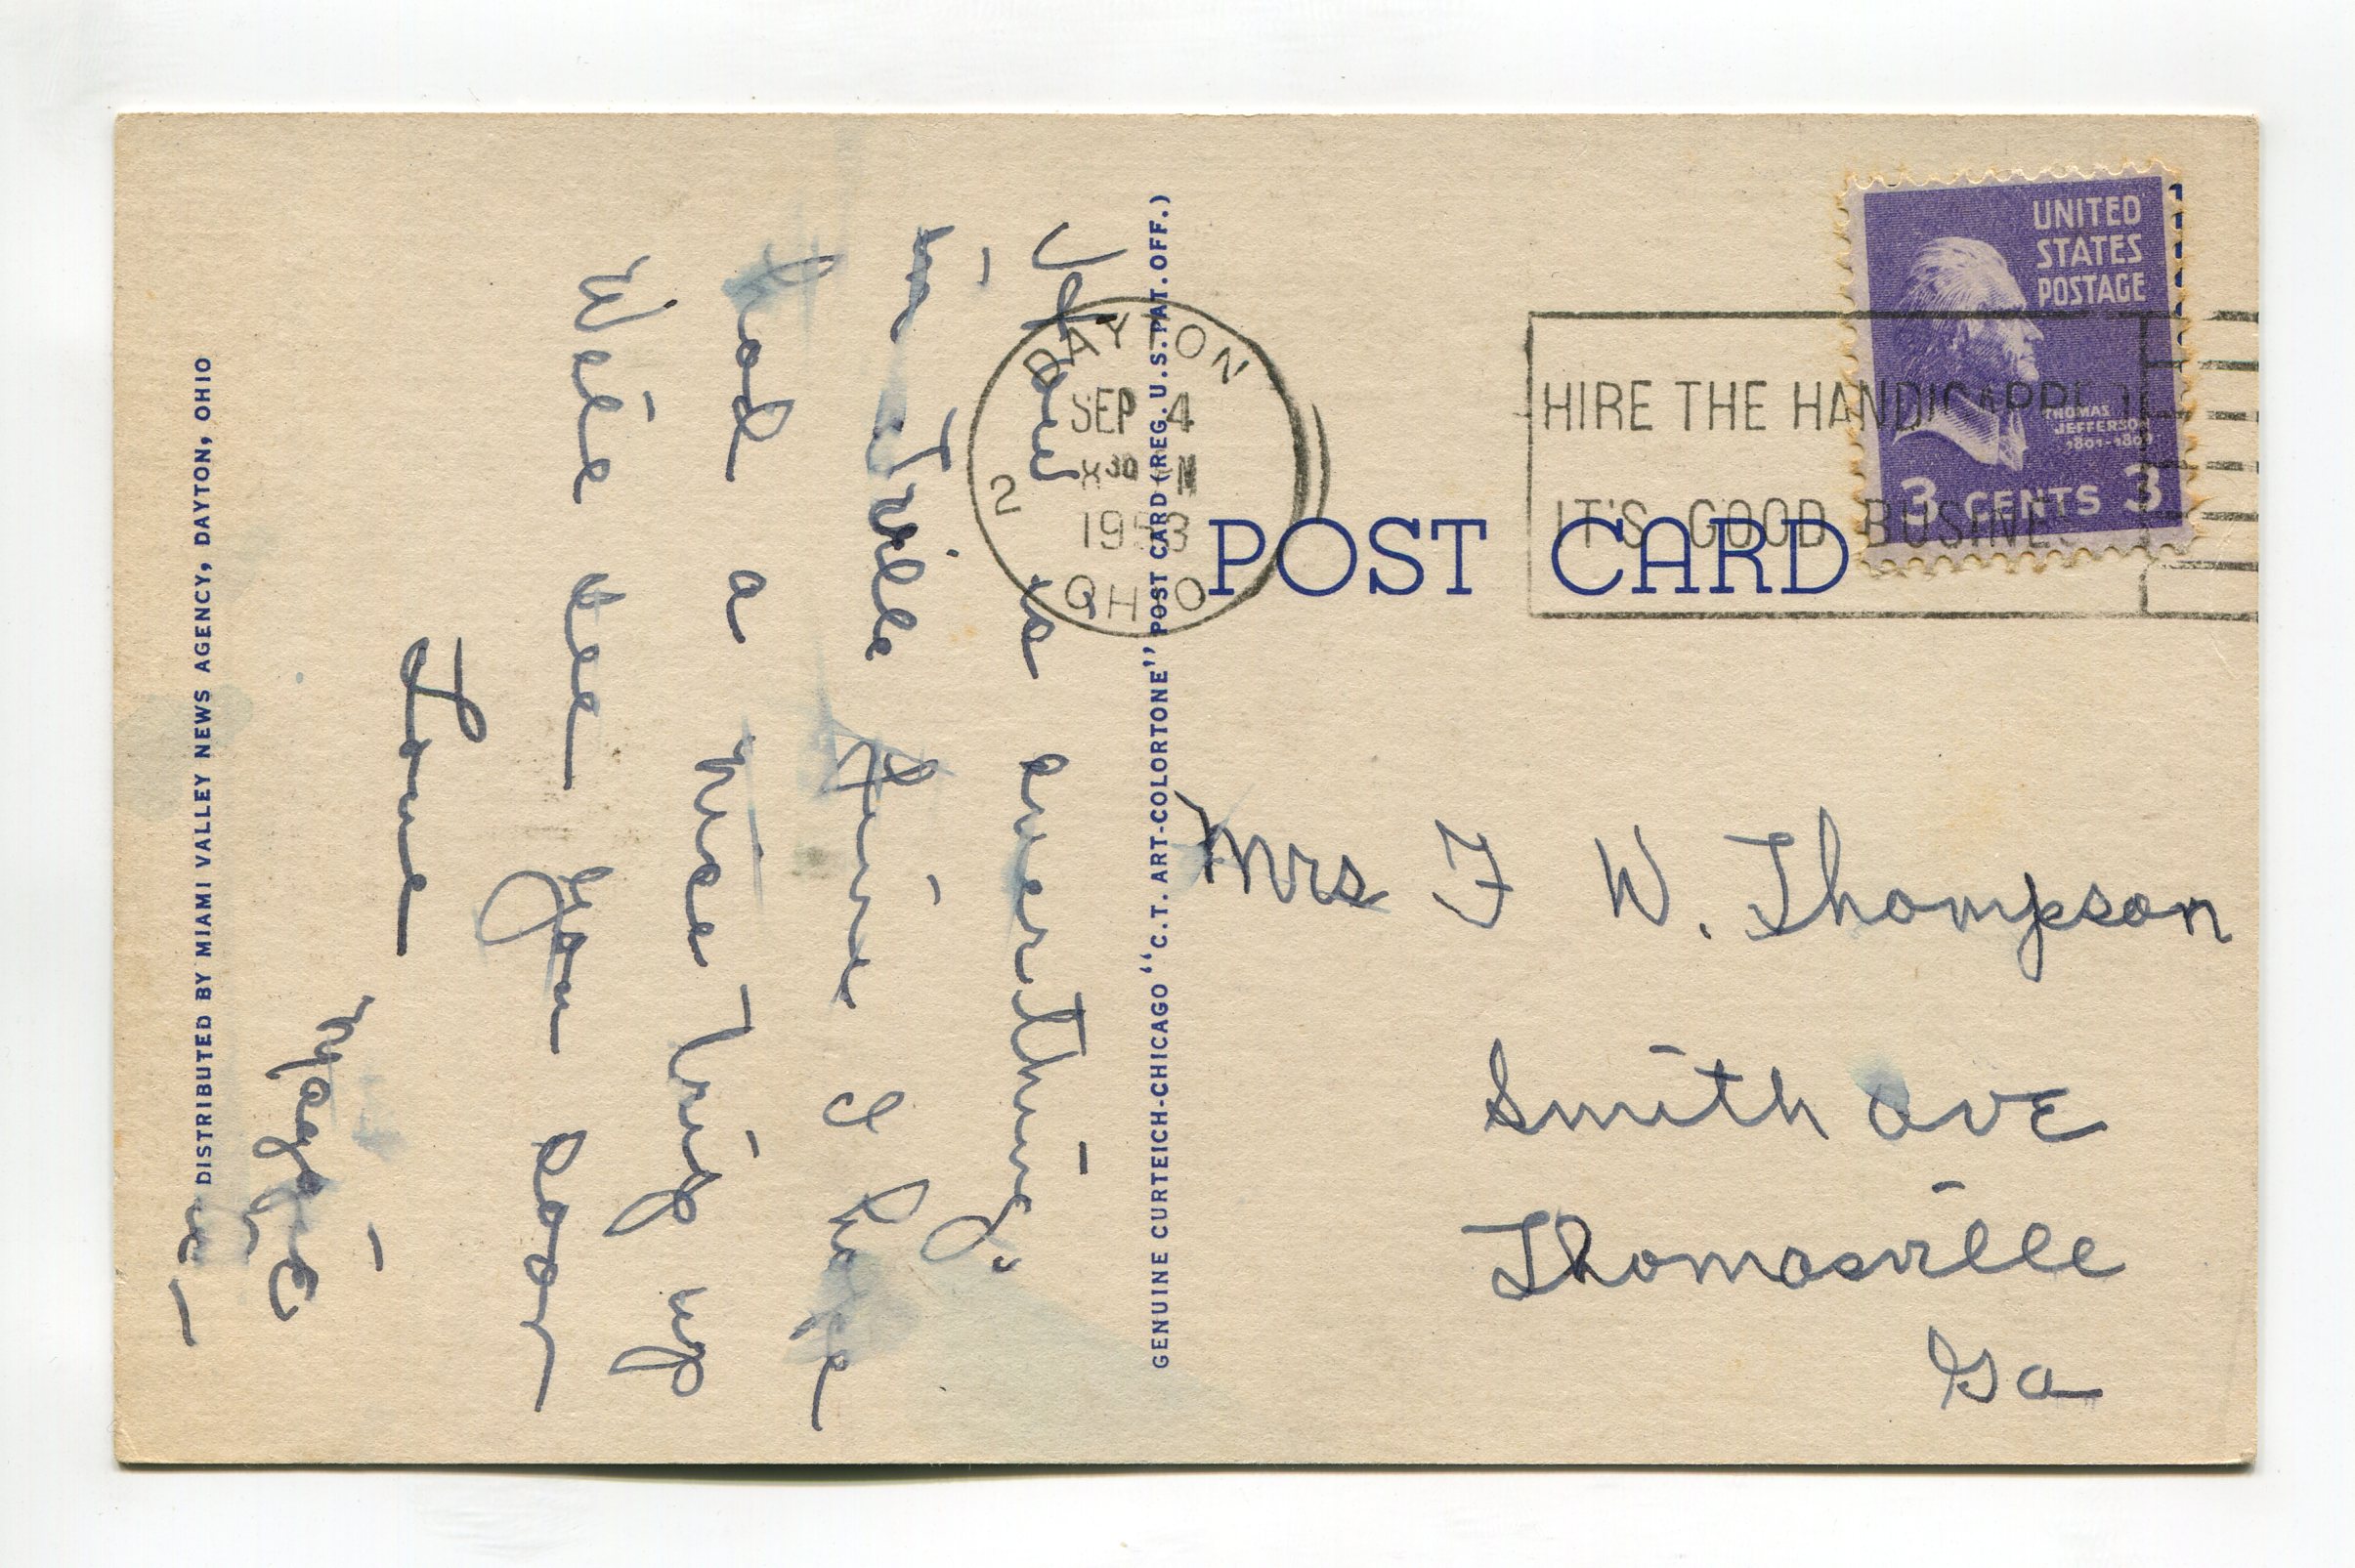 How is everything
in Tville Fine I hope
had a nice Trip up
Will see you soon
Love
DISTRIBUTED BY MIAMI VALLEY NEWS AGENCY, DAYTON, OHIO
GENUINE CURTEICH-CHICAGO "C.T. ART-COLORTONE" POST CARD (REG. U.S. PAT. OFF.)
DAYTON
SEP 4
30
1953
2
OHIO
POST CARD
HIRE THE HANDICAPPED
IT'S GOOD BUSINESS
UNITED
STATES
POSTAGE
THOMAS
JEFFERSON
1801-1809
3 CENTS 3
Mrs F W. Thompson
Smith ave
Thomasville
Ga